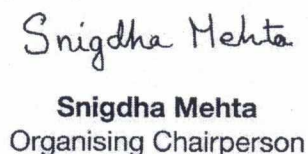 Snigdha Mehta
Snigdha Mehta
Organising Chairperson